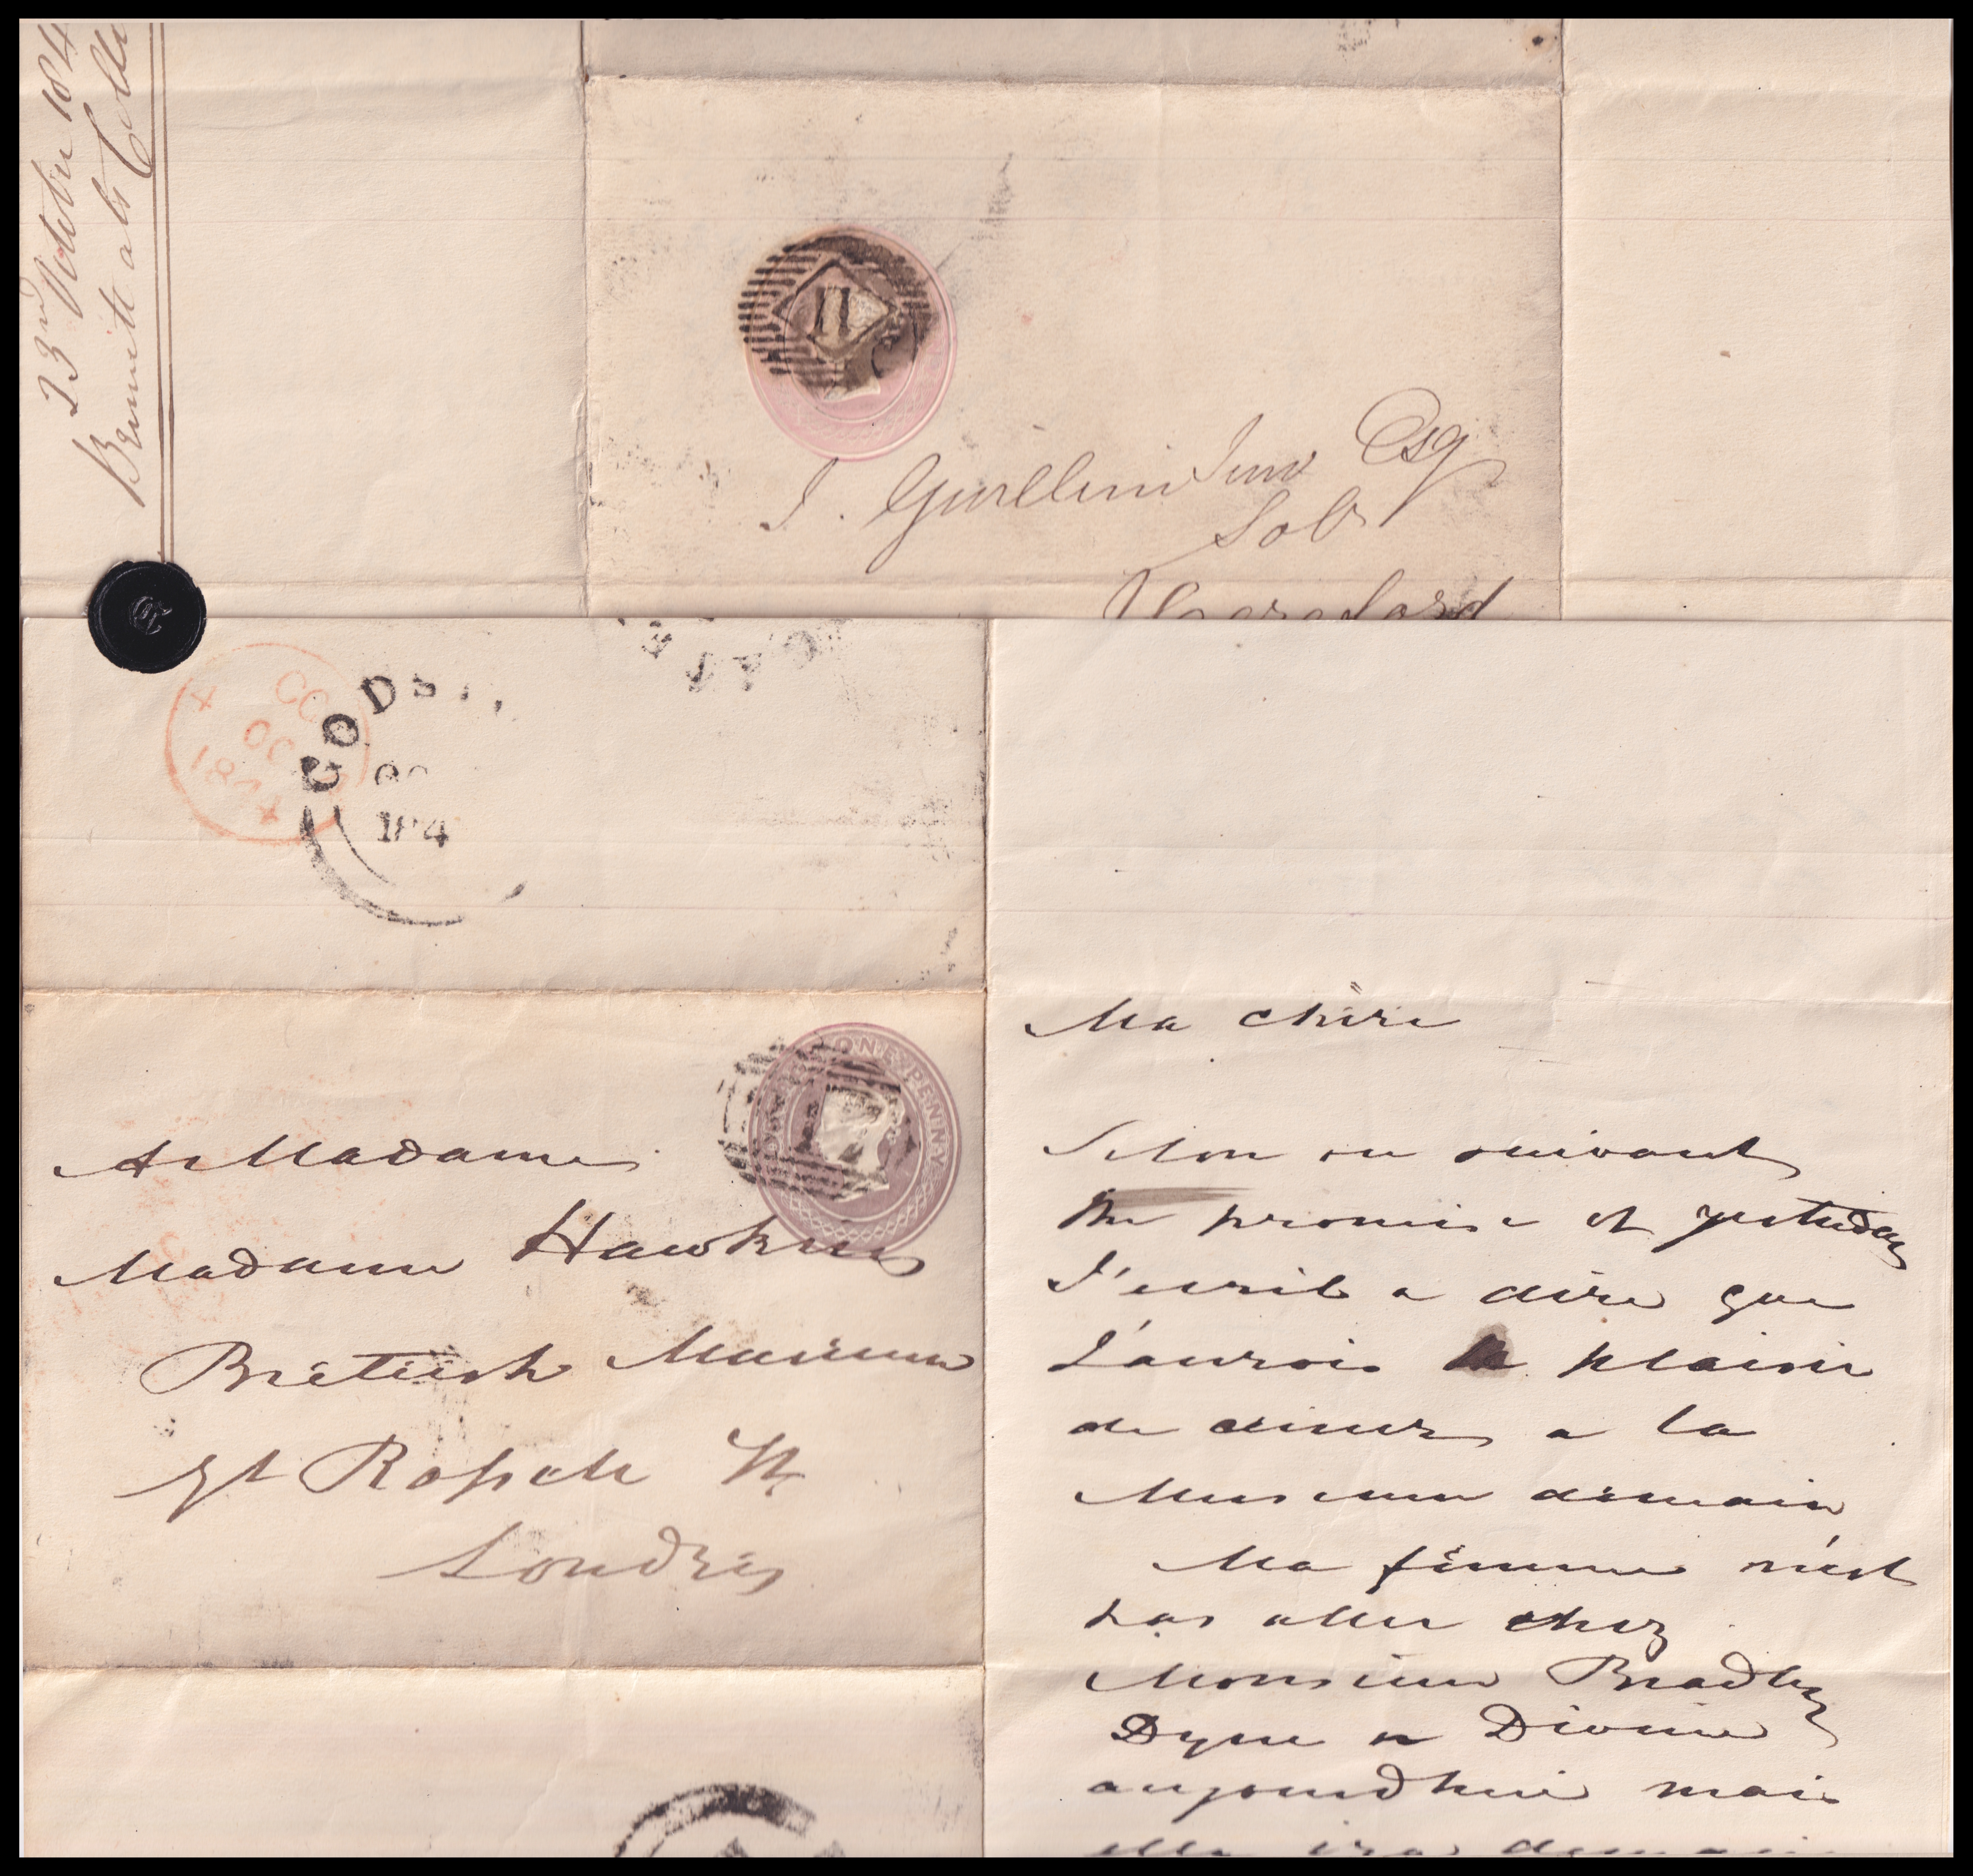 23rd October 184
Bennett ats
11
J. Gwillim Junr Esq
Solr
Hereford
GODST
OC
184
CC
OC
184
ONE PENNY
A Madame
Madame Hawkins
Britiish Museum
gt Rossele St
Londres
Ma chère
Selon ou suivant
the promise of yesterday
J'ecris a dire que
J'aurois le plaisir
de diner a la
Museum demain
Ma femme n'est
pas aller chez
Monsieur Bradley
Dyne
aujourdhui mais
elle ira demain